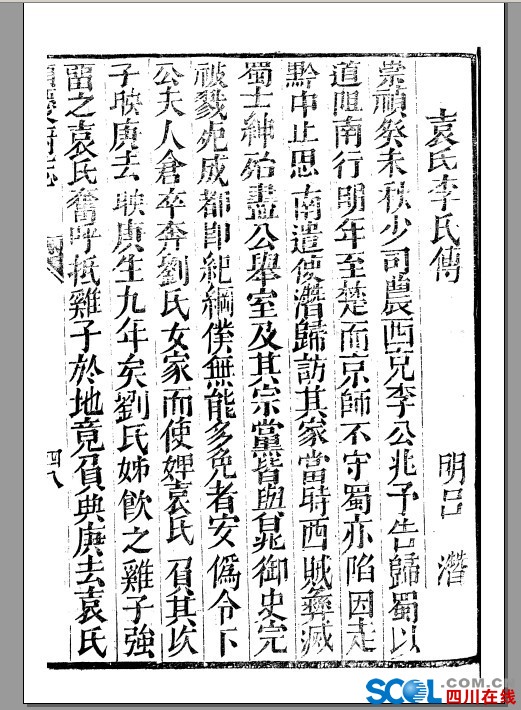 袁氏李氏傳 明呂潛
崇禎癸未秋少司農西充李公兆予告歸蜀以
道阻南行明年至楚而京師不守蜀亦陷因走
黔中止思南遣使潛歸訪其家當時西賊彝滅
蜀士紳殆盡公舉室及其宗黨皆與 御史完
被戮 成都 紀綱僕無能多免者 安偽令下
公夫人倉卒奔劉氏女家而使婢袁氏負其次
子映庚去映庚生九年矣劉氏姊飲之雞子強
畱之袁氏奮呼抵雞子於地竟負 庚去袁氏
慶府志 四八
SCOL.COM.CN
四川在线